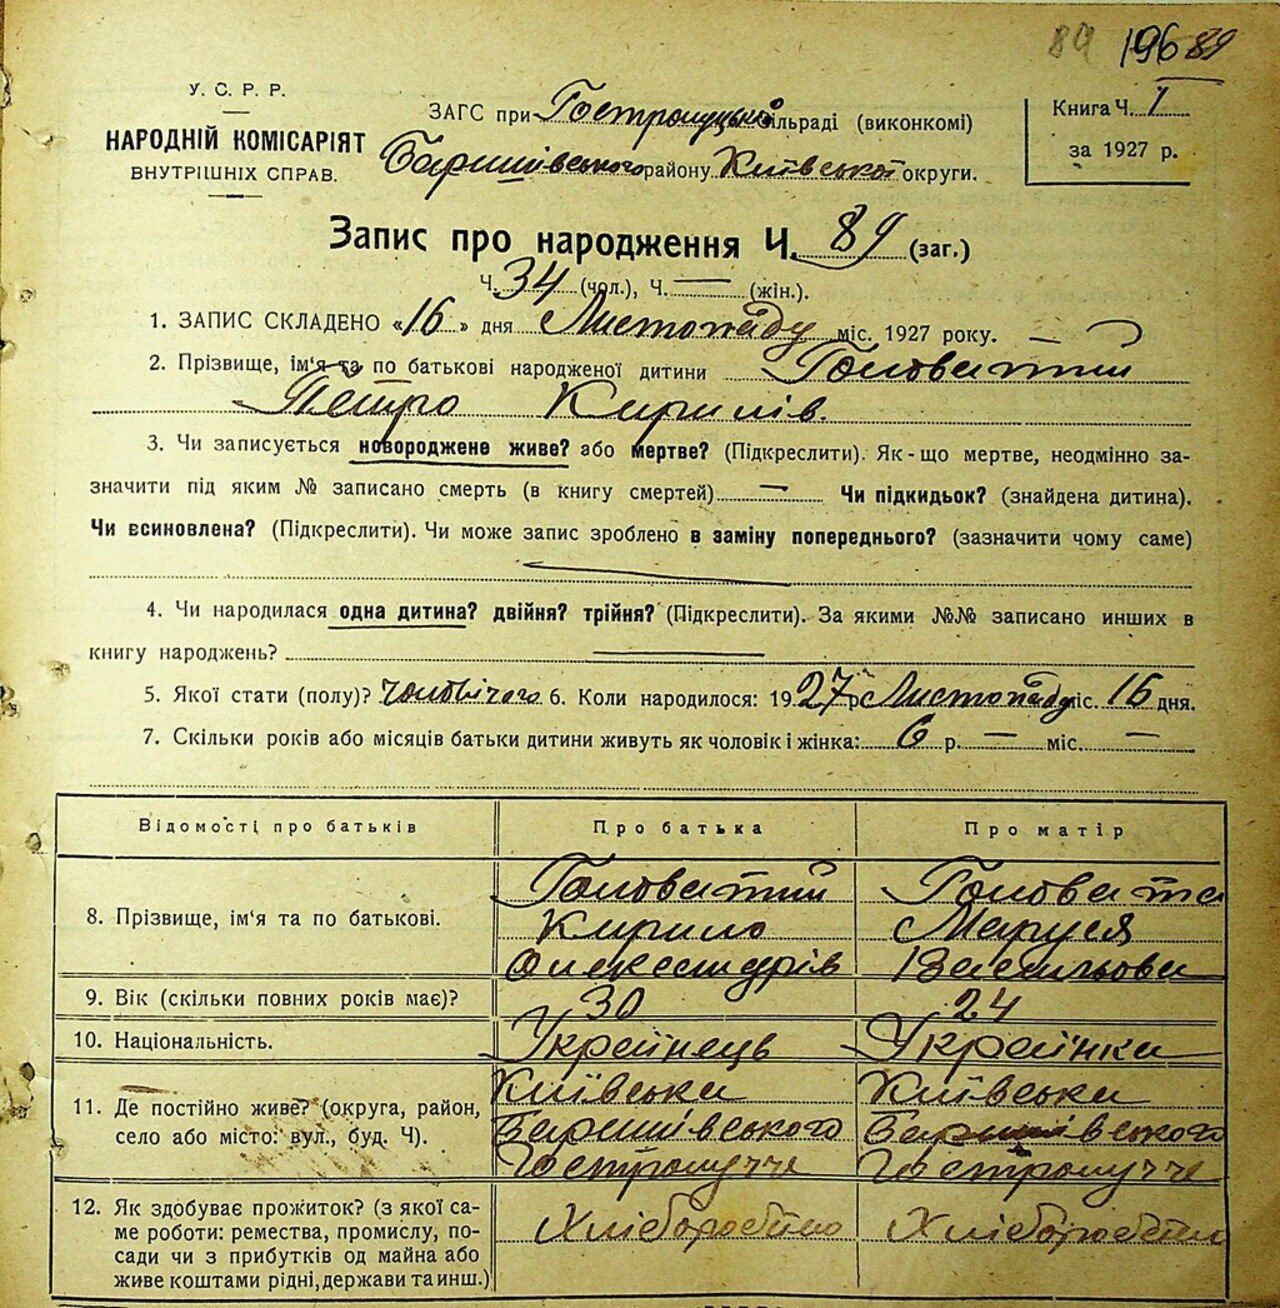 89 196 89
У. С. Р. Р.
НАРОДНІЙ КОМІСАРІЯТ
ВНУТРІШНІХ СПРАВ.
ЗАГС при Гостролуцькій сільраді (виконкомі)
Баришівського району Київської округи.
Книга Ч. 1
за 1927 р.
Запис про народження Ч. 89 (заг.)
Ч. 34 (чол.), Ч. — (жін.).
1. ЗАПИС СКЛАДЕНО «16» дня Листопаду міс. 1927 року.
2. Прізвище, ім'я та по батькові народженої дитини Головатий
Петро Кирилів.
3. Чи записується новороджене живе? або мертве? (Підкреслити). Як-що мертве, неодмінно за-
значити під яким № записано смерть (в книгу смертей) — Чи підкидьок? (знайдена дитина).
Чи всиновлена? (Підкреслити). Чи може запис зроблено в заміну попереднього? (зазначити чому саме)
4. Чи народилася одна дитина? двійня? трійня? (Підкреслити). За якими №№ записано инших в
книгу народжень?
5. Якої стати (полу)? чоловічого 6. Коли народилося: 1927 р. Листопаду міс. 16 дня.
7. Скільки років або місяців батьки дитини живуть як чоловік і жінка: 6 р. — міс. —
Відомості про батьків Про батька Про матір
8. Прізвище, ім'я та по батькові. Головатий Кирило Олександрів Головата Маруся Васильова
9. Вік (скільки повних років має)? 30 24
10. Національність. Українець Українка
11. Де постійно живе? (округа, район, Київська Київська
село або місто: вул., буд. Ч). Баришівського Баришівського
Гостролуччє Гостролуччє
12. Як здобуває прожиток? (з якої са-
ме роботи: ремества, промислу, по- Хліборобство Хліборобство
сади чи з прибутків од майна або
живе коштами рідні, держави та инш.)